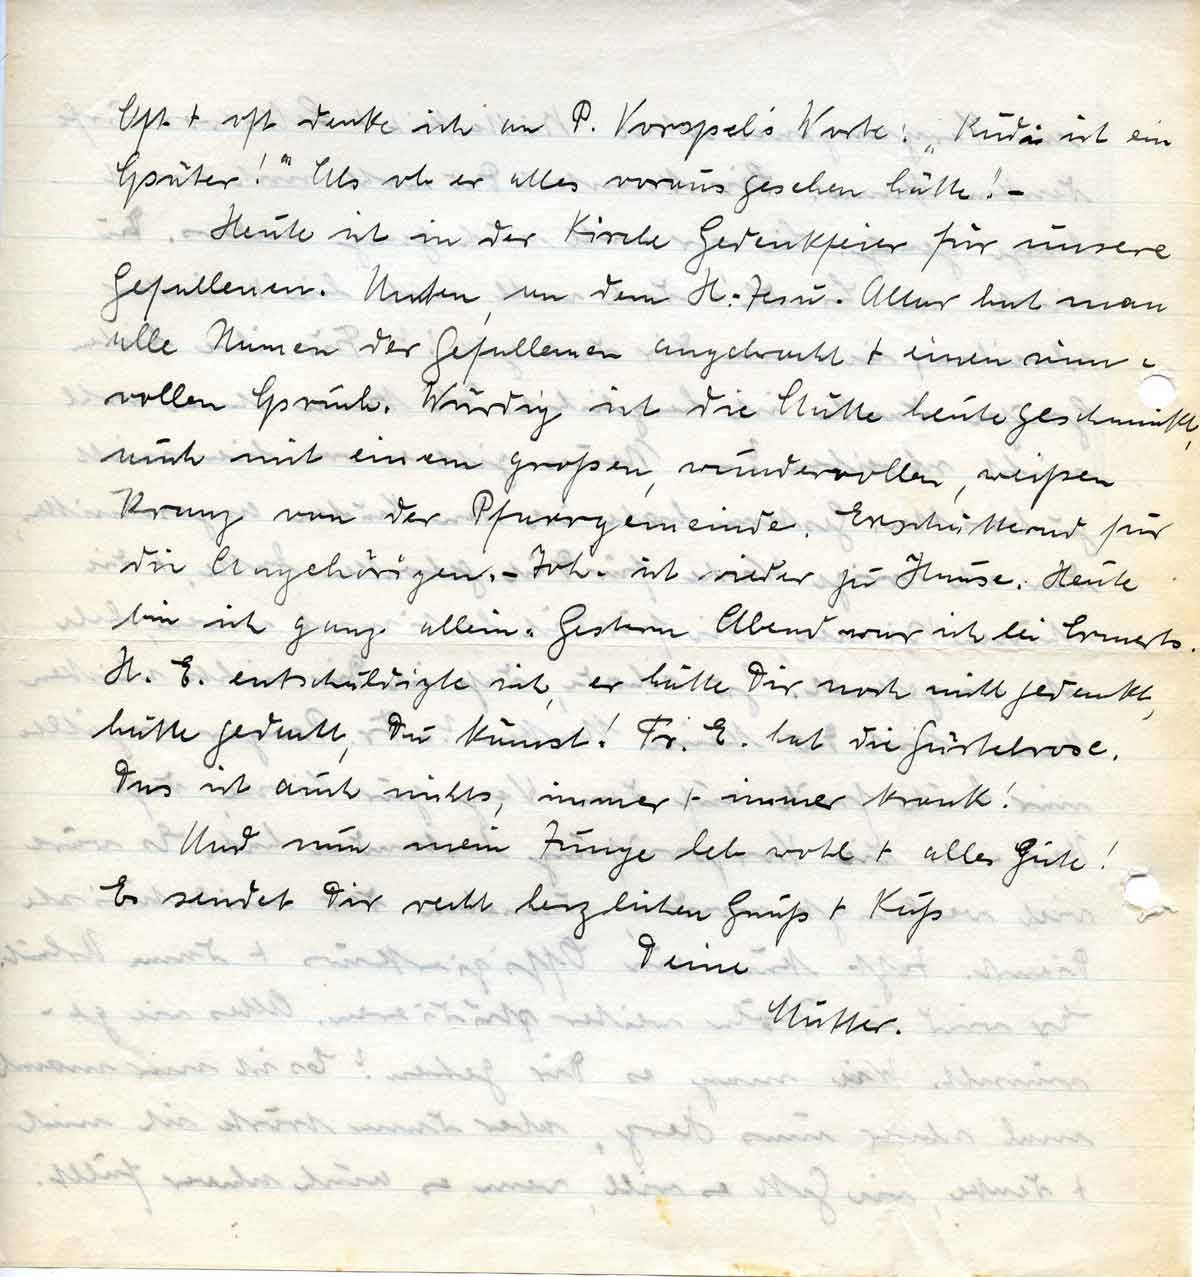 Oft + oft denke ich an P. Vorspel's Worte: „ Rudi ist ein
Später!" Als ob er alles vorausgesehen hätte! -
Heute ist in der Kirche Gedenkfeier für unsere
Gefallenen. Unten, an dem H.-Jesu-Altar hat man
alle Namen der Gefallenen angebracht + einen sinn-
vollen Spruch. Würdig ist die Stätte heute geschmückt,
auch mit einem großen, wundervollen, weißen
Kranz von der Pfarrgemeinde. Erschütternd für
die Angehörigen. - Joh. ist wieder zu Hause. Heute
bin ich ganz allein. Gestern Abend war ich bei
H. E. entschuldigte sich, er hätte Dir noch nicht gedankt,
hätte gedacht, Du kämst! Fr. E. hat die Gürtelrose.
Das ist auch nichts, immer + immer krank!
Und nun mein Junge leb wohl + alles Gute!
Es sendet Dir recht herzlichen Gruß + Kuß
Deine
Mutter.